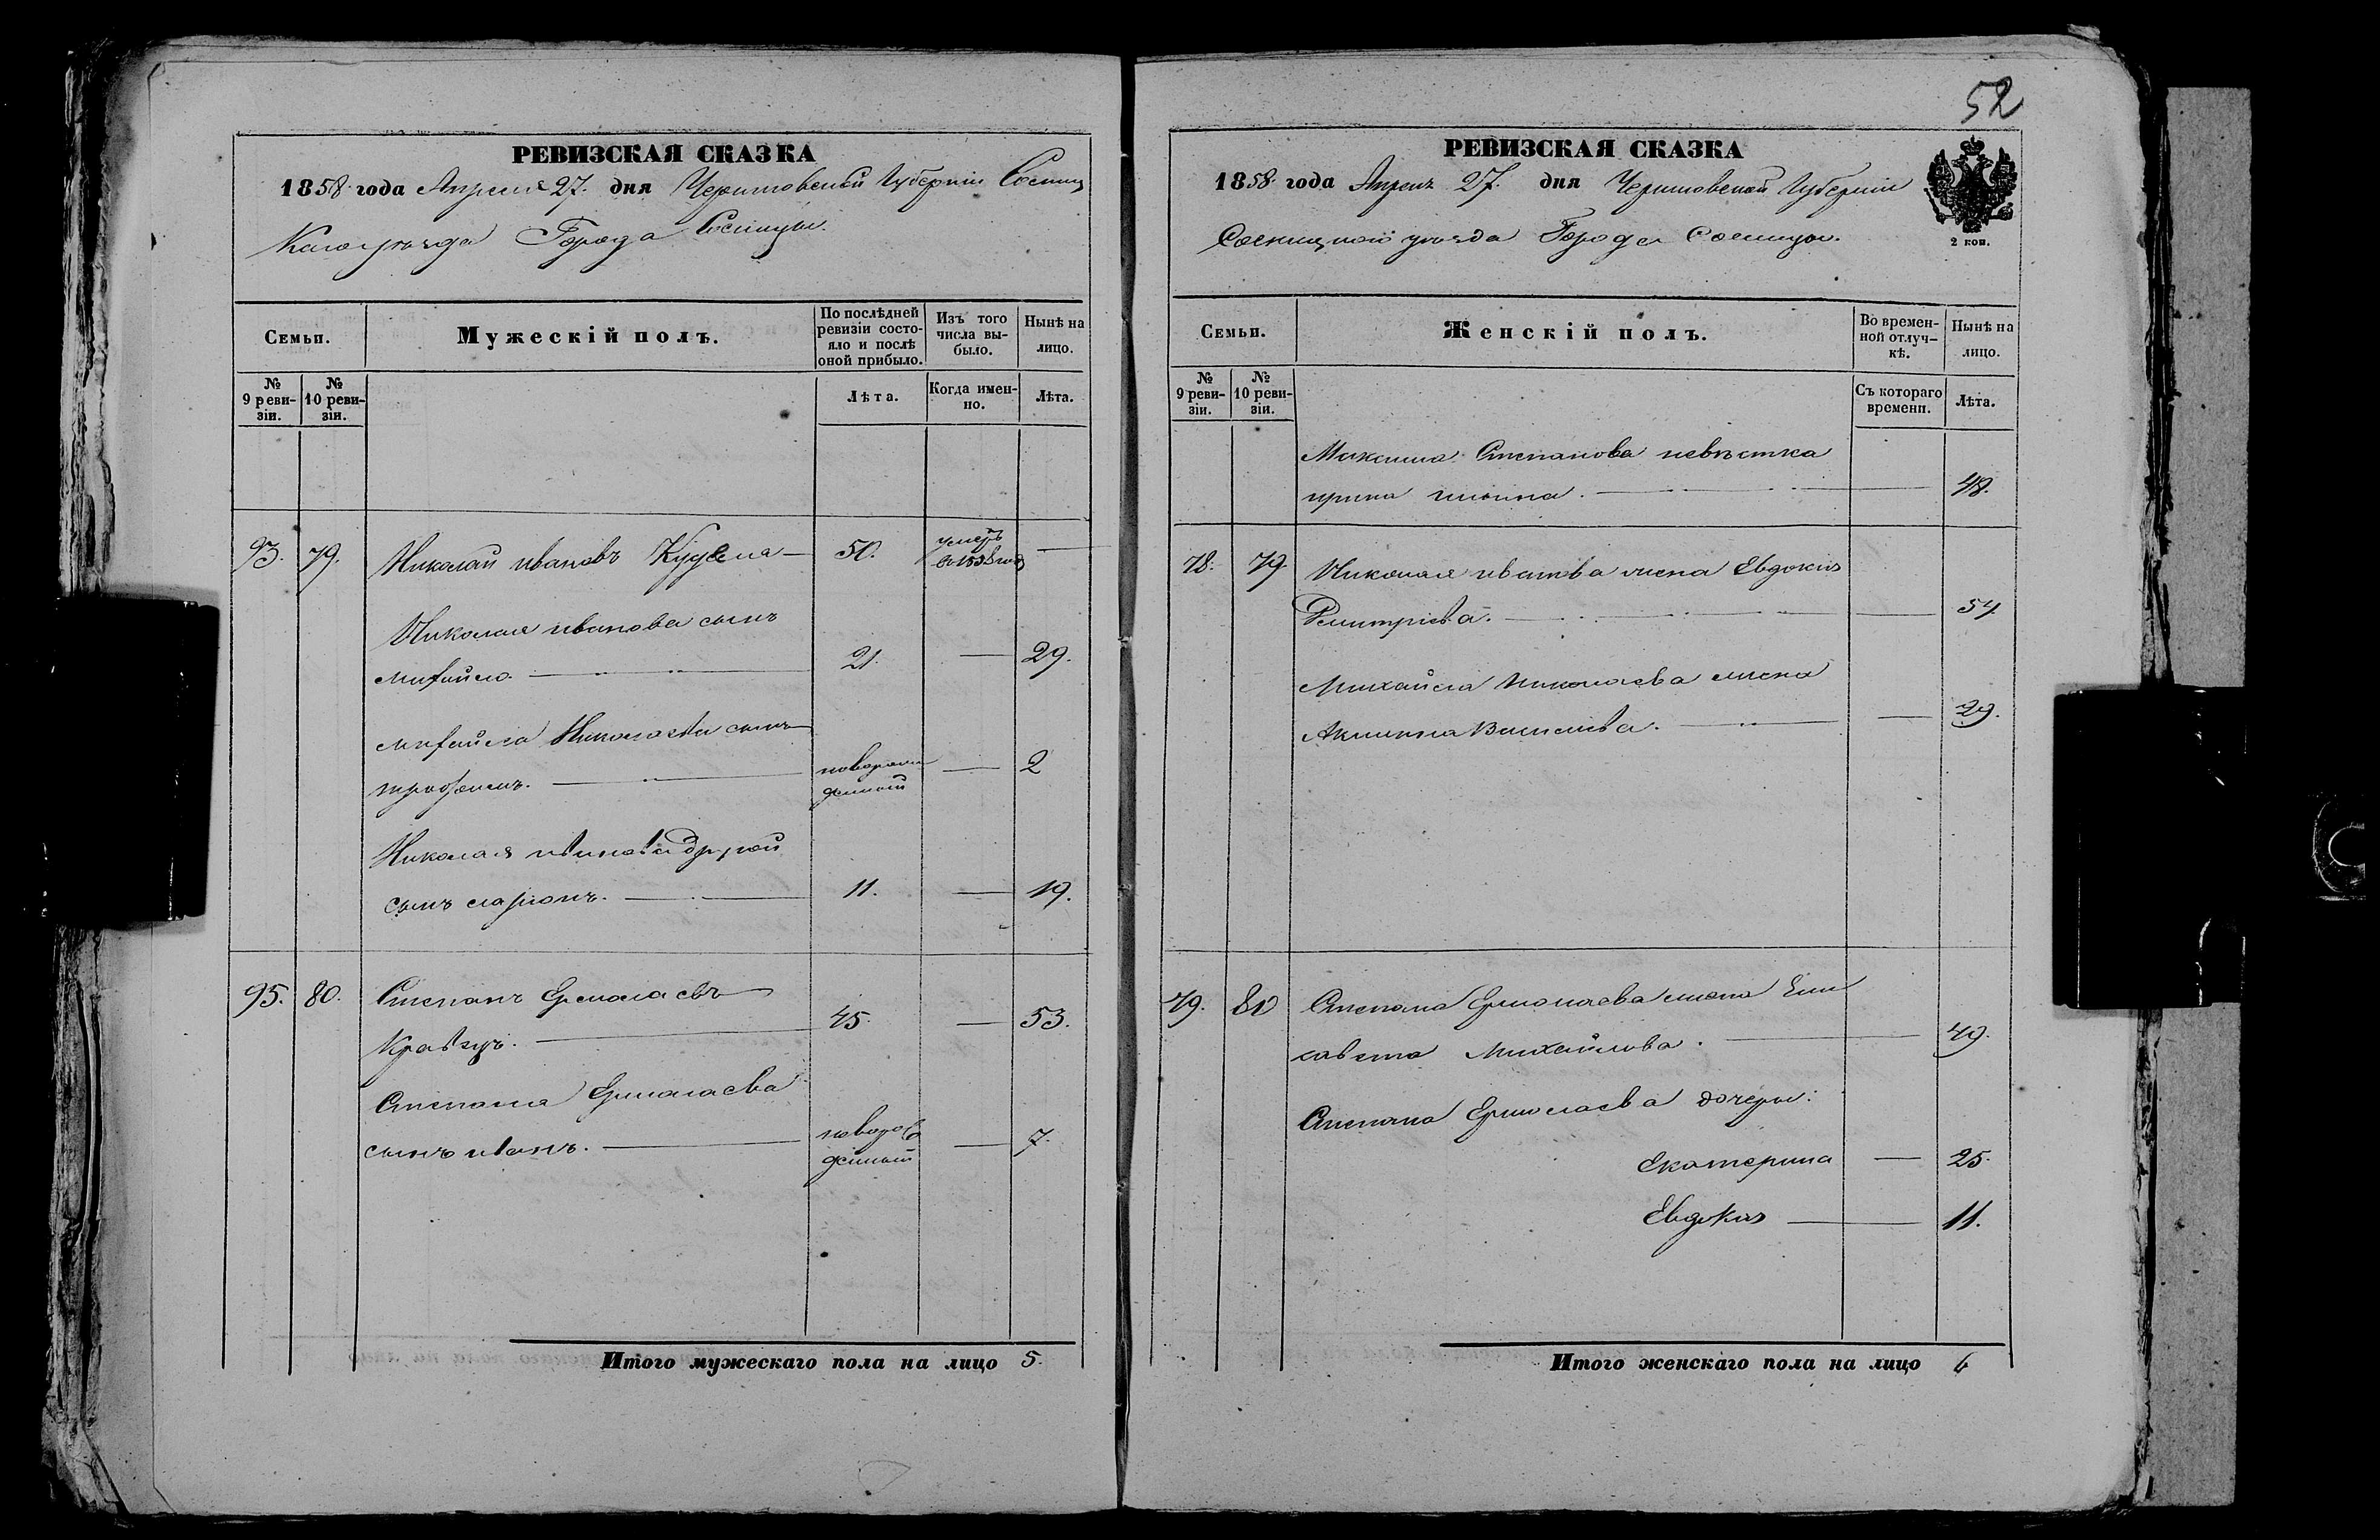 52
РЕВИЗСКАЯ СКАЗКА
1858 года Апреля 27. дня Черниговской Губерніи Сосниц
Каго уезда Города Сосницы.
Семьи.
Мужескій полъ.
По послѣдней ревизіи состо-
яло и послѣ
оной прибыло.
Изъ того
числа вы-
было.
Нынѣ на
лицо.
№
9 реви-
зіи.
№
10 реви-
зіи.
Лѣта.
Когда имен-
но.
Лѣта.
93. 79. Николай ивановъ 50. умеръ
Николая иванова сынъ
михайло 21. 29.
михайла Николаева сынъ
трофимъ. новорож
денный 2
Николая иванова другой
сынъ 11. 19.
95. 80. Степанъ Ермолаевъ
Кравецъ. 45. 53.
Степана Ермолаева
сынъ иванъ. новорож
денный 7.
Итого мужескаго пола на лицо 5.
РЕВИЗСКАЯ СКАЗКА
1858 года Апреля 27. дня Черниговской Губерніи
Сосницкого уезда Города Сосницы.
2 коп.
Семьи.
Женскій полъ.
Во времен-
ной отлуч-
кѣ.
Нынѣ на
лицо.
№
9 реви-
зіи.
№
10 реви-
зіи.
Съ котораго
времени.
Лѣта.
Максима Степанова невѣстка
ирина 48.
78. 79. Николая иванова жена Евдокія
Дмитріева. 54
Михайла Николаева жена
Акилина Василиева. 29.
79. 80 Степана Ермолаева жена Ели
савета Михайлова. 49.
Степана Ермолаева дочеры:
Екатерина 25.
Евдокия 11.
Итого женскаго пола на лицо 6